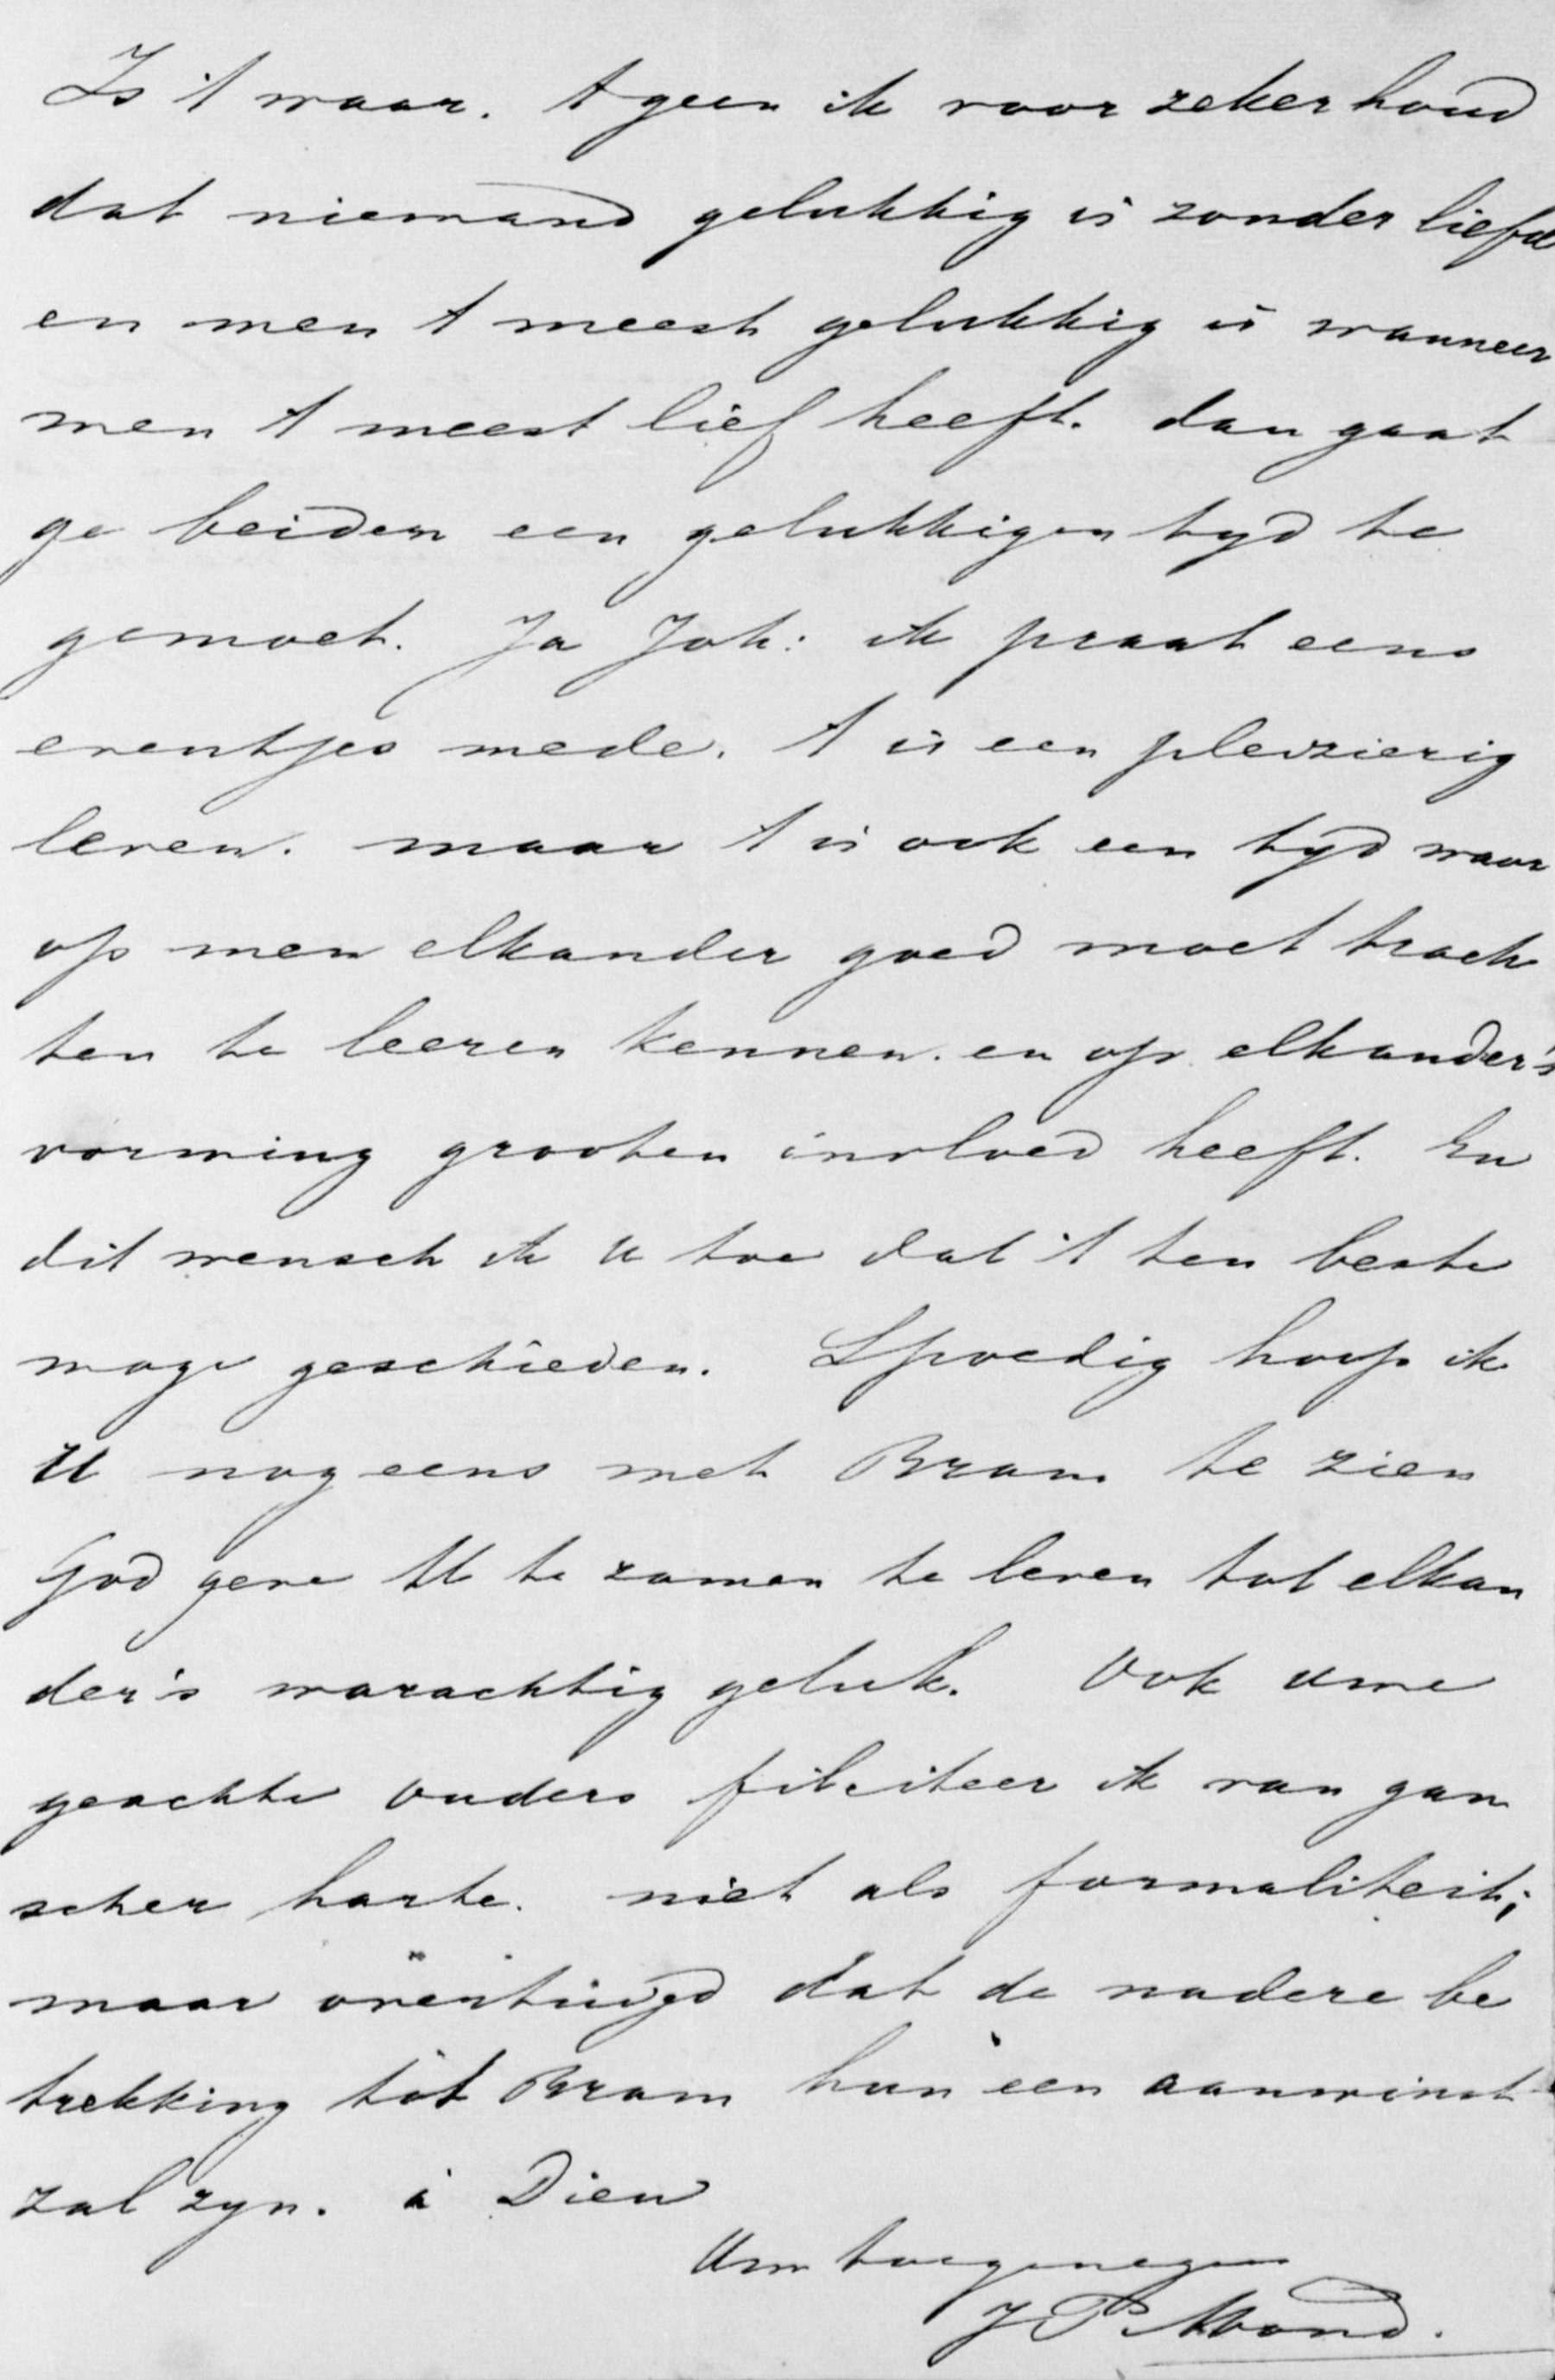 Is 't waar. tgeen ik voor zeker houd
dat niemand gelukkig is zonder liefde
en men t meest gelukkig is wanneer
men t meest lief heeft. dan gaat
ge beiden een gelukkigen tyd te
gemoet. Ja Joh: ik praat eens
eventjes mede. t is een pleizierig
leven. maar t is ook een tyd waar
op men elkander goed moet trach
ten te leeren kennen. en op elkander's
vorming grooten invloed heeft. En
dit wensch ik u toe dat 't ten beste
moge geschieden. Spoedig hoop ik
U nog eens met Bram te zien
God geve U te zamen te leven tot elkan
der's warachtig geluk. Ook uwe
geachte ouders filiciteer ik van gan
scher harte. niet als formaliteit;
maar overtuigd dat de nadere be
trekking tot Bram hun een aanwinst
zal zyn. à Dieu
Uw toegenegen
J P